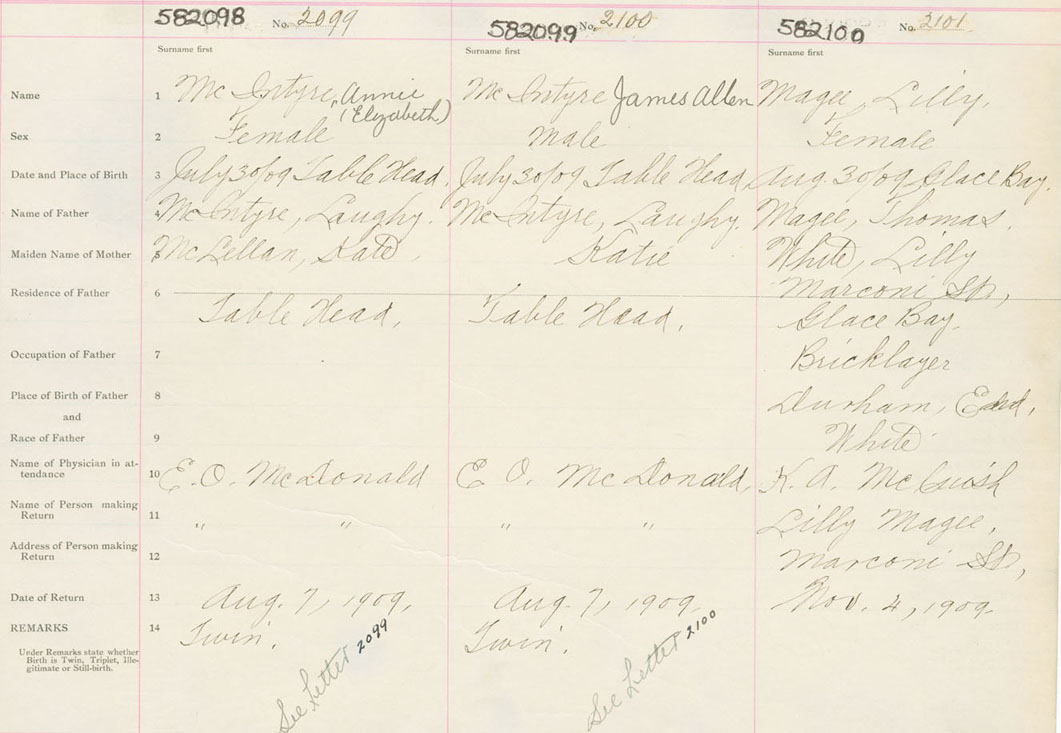 582098 No. 2099 582099 No. 2100 582100 No. 2101
Surname first Surname first Surname first
Name 1 Mc Intyre, Annie Mc Intyre James Allen Magee, Lilly.
(Elizabeth)
Sex 2 Female Male Female
Date and Place of Birth 3 July 30/09 Table Head. July 30/09 Table Head, Aug. 30/09 Glace Bay.
Name of Father 4 Mc Intyre, Laughy. Mc Intyre, Laughy. Magee, Thomas.
Maiden Name of Mother 5 McLellan, Kate, Katie White, Lilly
Residence of Father 6 Marconi St,
Table Head, Table Head, Glace Bay.
Occupation of Father 7 Bricklayer
Place of Birth of Father 8 Durham, End,
and
Race of Father 9 White
Name of Physician in at-
tendance 10 E. O. McDonald E O. McDonald, K. A. McCuish
Name of Person making
Return 11 " " " " Lilly Magee,
Address of Person making
Return 12 Marconi St,
Date of Return 13 Aug. 7, 1909, Aug. 7, 1909, Nov. 4, 1909.
REMARKS 14 Twin. Twin.
Under Remarks state whether
Birth is Twin, Triplet, Ille-
gitimate or Still-birth.
See Letter 2099 See Letter 2100